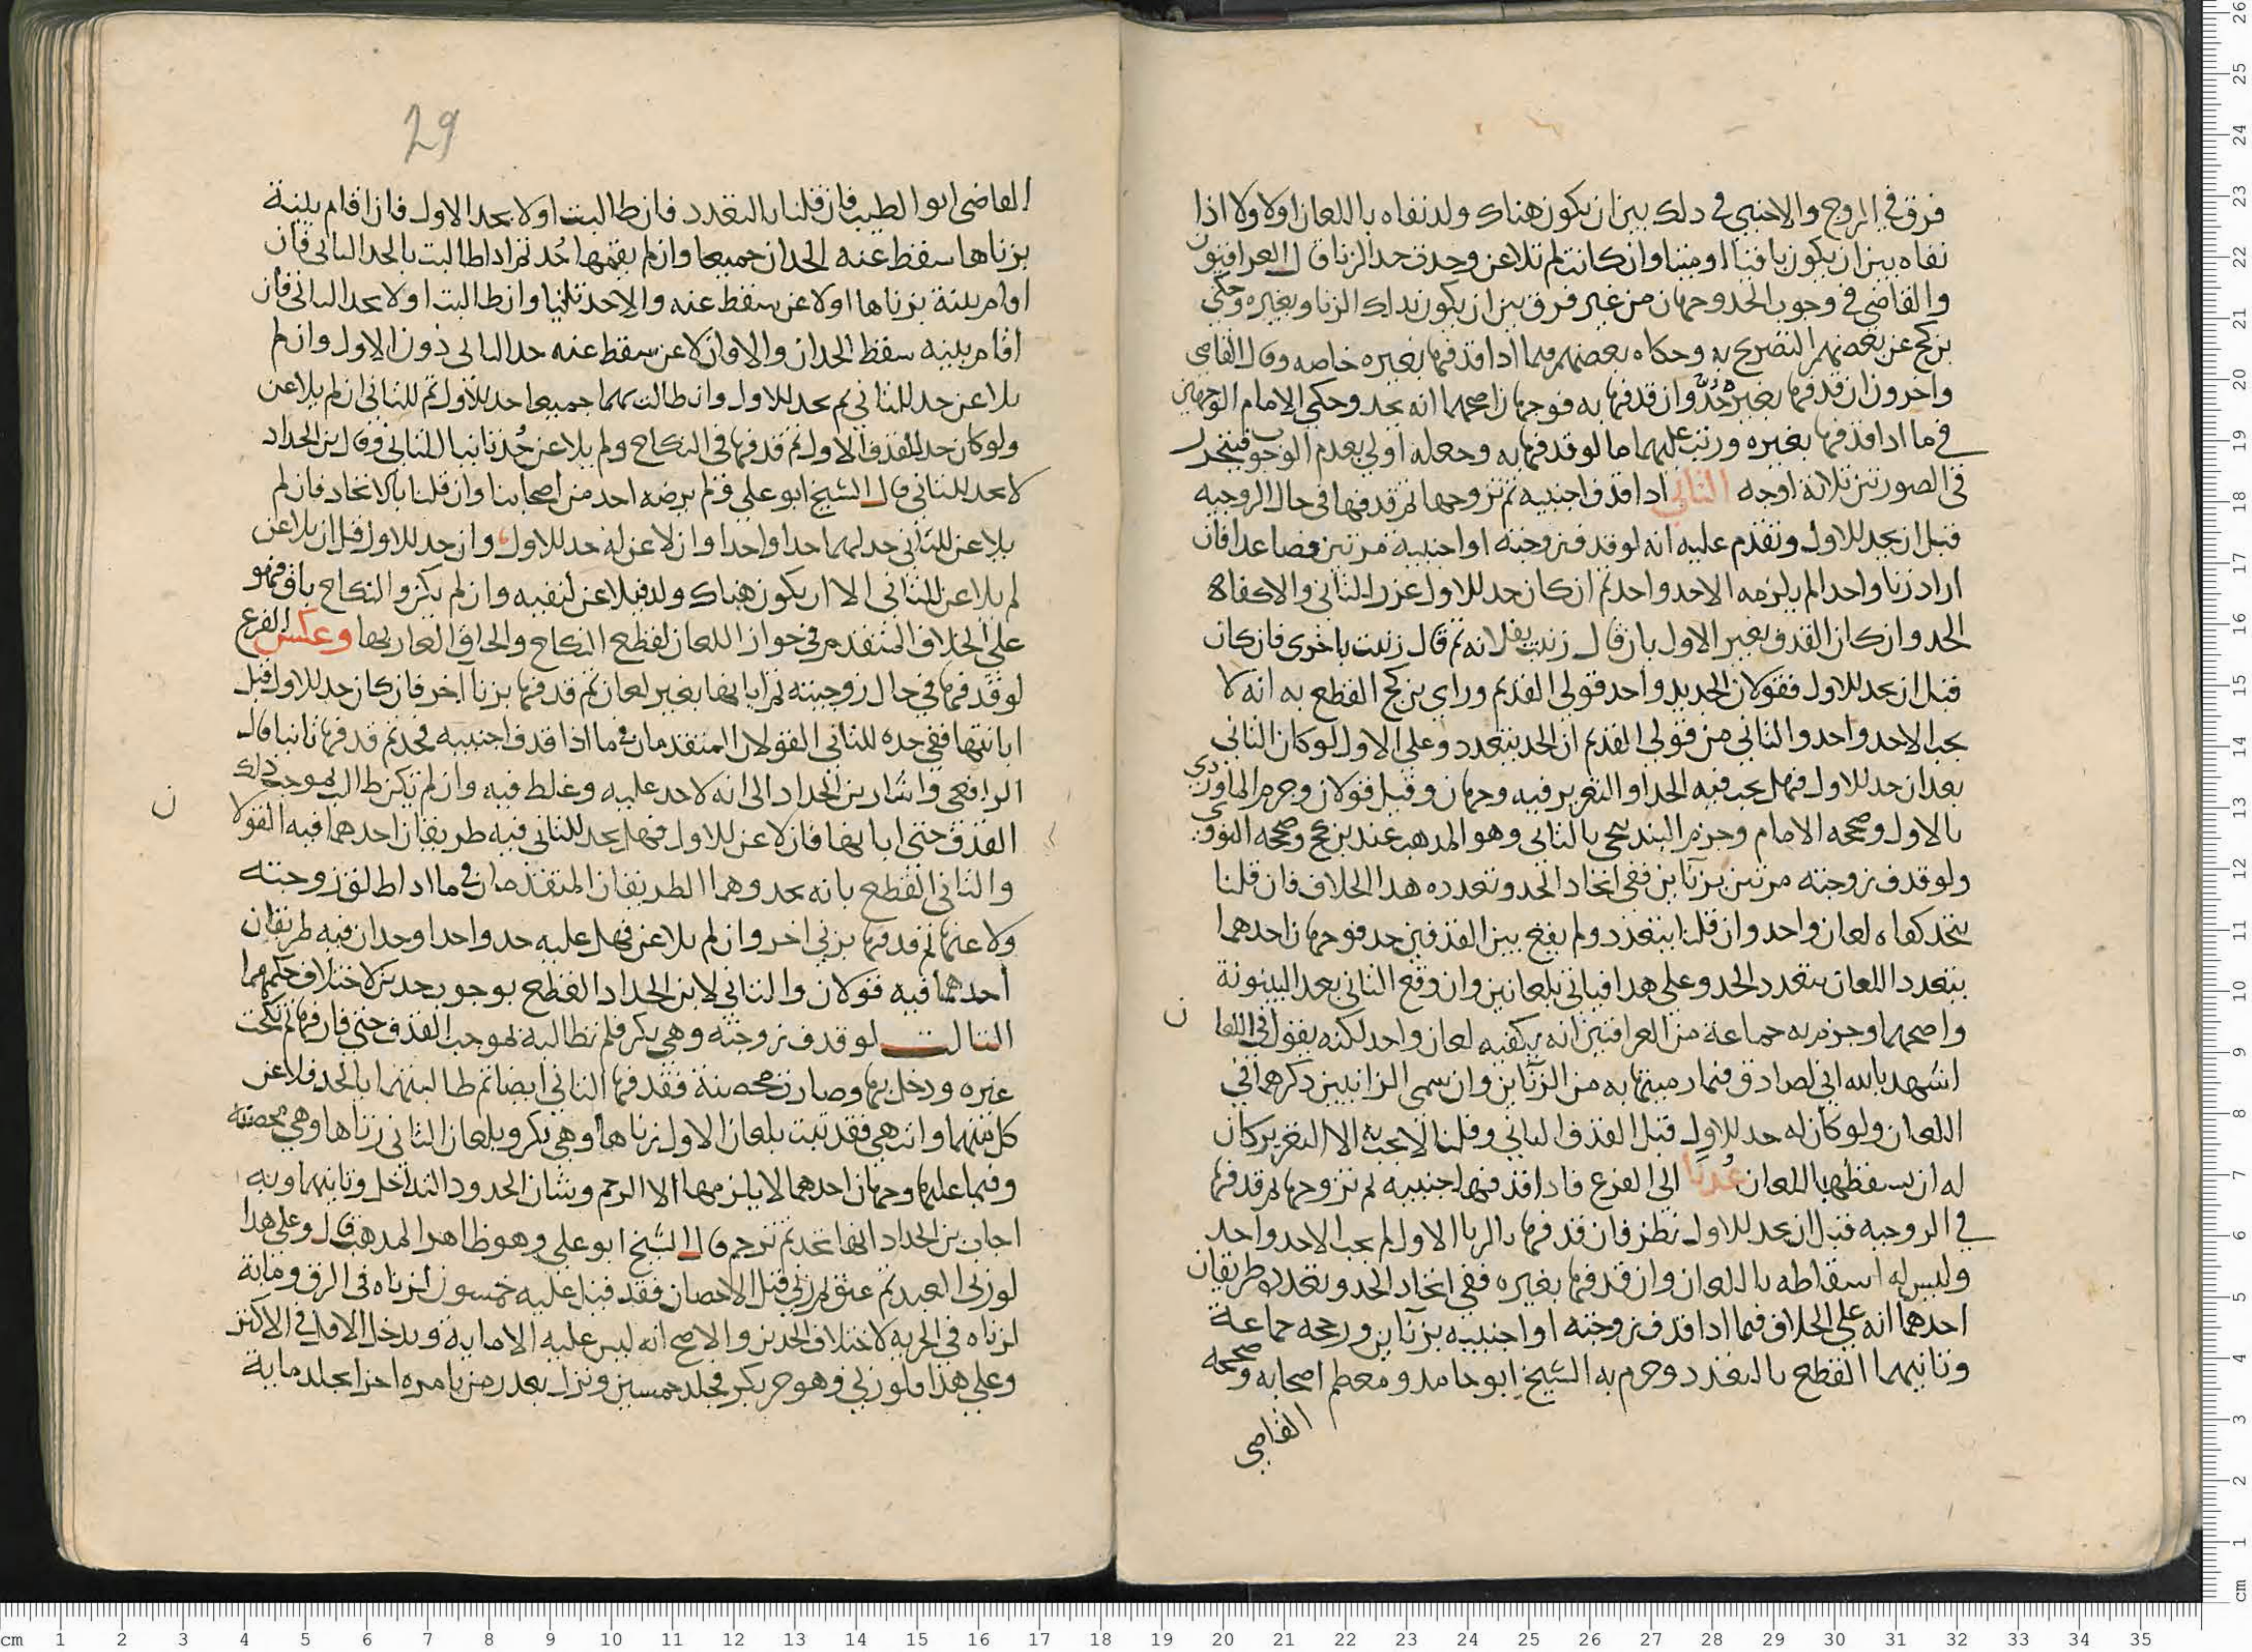 فرق في الزوج والاجنبي في ذلك بين ان يكون هناك ولد نفاه باللعان اولا ولا اذا
نفاه بين ان يكون باقيا او ميتا وان كانت لم تلاعن وحدت حد الزنا قال العراقيون
والقاضي في وجوب الحد وجهان من غير فرق بين ان يكون بذاك الزنا وبغيره وحكى
بن كج عن بعضهم التصريح به وحكاه بعضهم فيما اذا قذفها بغيره خاصه وقال القاضي
واخرون ان قذفها بغيره حُدّ وان قذفها به فوجهان اصحهما انه يحد وحكى الامام الوجهان
في ما اذا قذفها بغيره ورتب عليهما ما لو قذفها به وجعله اولى بعدم الوجوب فيتحرر
في الصورتين ثلاثة اوجه الثاني اذا قذف اجنبيه ثم تزوجها ثم قذفها في حال الزوجيه
قبل ان يحد للاول وتقدم عليه انه لو قذف زوجته او اجنبية مرتين فصاعدا فان
اراد زنا واحدا لم يلزمه الا حد واحد ثم ان كان حد للاول عزر للثاني والا كفاه
الحد وان كان القذف بغير الاول بان قال زنيت بفلانه ثم قال زنيت باخرى فان كان
قبل ان يحد للاول فقولان الجديد واحد قولي القديم وراي بن كج القطع به انه لا
يجب الا حد واحد والثاني من قولي القديم ان الحد يتعدد وعلى الاول لو كان الثاني
بعد ان حد للاول فهل يجب فيه الحد او التعزير فيه وجهان وقيل قولان وجزم الماوردي
بالاول وصححه الامام وجزم البندنيجي بالثاني وهو المذهب عند بن كج وصححه النووي
ولو قذف زوجته مرتين بزنآين ففي اتحاد الحد وتعدده هذا الخلاف فان قلنا
يتحد كفاه لعان واحد وان قلنا يتعدد ولم يقع بين القذفين حد فوجهان احدهما
يتعدد اللعان بتعدد الحد وعلى هذا فياتي بلعانين وان وقع الثاني بعد البينونة
واصحهما وجزم به جماعة من العراقيين انه يكفيه لعان واحد لكنه يقول في اللعا ن
اشهد بالله اني لصادق فيما رميتها به من الزنآين وان سمى الزانيين ذكرهما في
اللعان ولو كان له حد للاول قبل القذف الثاني وقلنا لا يجب به الا التعزير كان
له ان يسقطها باللعان عُدنا الى الفرع فاذا قذفها اجنبيه ثم تزوجها ثم قذفها
في الزوجيه قبل ان يحد للاول نظر فان قذفها بالزنا الاول لم يجب الا حد واحد
وليس له اسقاطه باللعان وان قذفها بغيره ففي اتحاد الحد وتعدده طريقان
احدهما انه على الخلاف فيما اذا قذف زوجته او اجنبيه بزنآين ورجحه جماعة
وثانيهما القطع بالتعدد وجزم به الشيخ ابو حامد ومعظم اصحابه وصححه
القاضي
29
القاضي ابو الطيب فان قلنا بالتعدد فان طالبت اولا بحد الاول فان اقام بينة
بزناها سقط عنه الحدان جميعا وان لم يقمها حُد ثم اذا طالبت بالحد الثاني فان
اقام بينة بزناها او لاعن سقط عنه والا حد ثانيا وان طالبت اولا بحد الثاني فان
اقام بينه سقط الحدان والا وان لاعن سقط عنه حد الثاني دون الاول وان لم
يلاعن حد للثاني ثم يحد للاول وان طالبت بهما جميعا حد للاول ثم للثاني ان لم يلاعن
ولو كان حد للقذف الاول ثم قذفها في النكاح ولم يلاعن حُد ثانيا للثاني وقال بن الحداد
لا يحد للثاني قال الشيخ ابو علي ولم يرضه احد من اصحابنا وان قلنا بالاتحاد فان لم
يلاعن للثاني حد لهما حدا واحدا وان لاعن له حد للاول وان حد للاول قبل ان يلاعن
لم يلاعن للثاني الا ان يكون هناك ولد فيلاعن لنفيه وان لم يكن والنكاح باق فهو
على الخلاف المتقدم في جواز اللعان لقطع النكاح والحاق العار بها وعكس الفرع
لو قذفها في حال زوجيته ثم ابانها بغير لعان ثم قذفها بزنا آخر فان كان حد للاول قبل
ابانتها ففي حده للثاني القولان المتقدمان في ما اذا قذف اجنبيه فحد ثم قذفها ثانيا قال
الرافعي واشار بن الحداد الى انه لا حد عليه وغلط فيه وان لم تكن طالبت بموجب ذلك
القذف حتى ابانها فان لاعن للاول فهل يحد للثاني فيه طريقان احدهما فيه القولا ن
والثاني القطع بانه يحد وهما الطريقان المتقدمان في ما اذا طلق زوجته
ولاعنها ثم قذفها بزنى اخر وان لم يلاعن فهل عليه حد واحد او حدان فيه طريقان
احدهما فيه قولان والثاني لابن الحداد القطع بوجوب حدين لاختلاف حكمهما
الثالث لو قذف زوجته وهي بكر فلم تطالبه بموجب القذف حتى فارقها ثم نكحت
غيره ودخل بها وصارت محصنة فقذفها الثاني ايضا ثم طالبتهما بالحد فلاعن
كل منهما وابت هي فقد ثبت بلعان الاول زناها وهي بكر وبلعان الثاني زناها وهي محصنه
وفيما عليها وجهان احدهما لا يلزمها الا الرجم وشان الحدود التداخل وثانيهما وبه
اجاب بن الحداد انها تحد ثم ترجم قال الشيخ ابو علي وهو ظاهر المذهب قال وعلى هذا
لو زنى العبد ثم عتق ثم زنى قبل الاحصان فقد قيل عليه خمسون لزناه في الرق ومائة
لزناه في الحرية لاختلاف الحدين والاصح انه ليس عليه الا ماية ويدخل الاقل في الاكثر
وعلى هذا فلو زنى وهو حر بكر فجلد خمسين وترك بعذر من بامره اخرا يجلد ماية